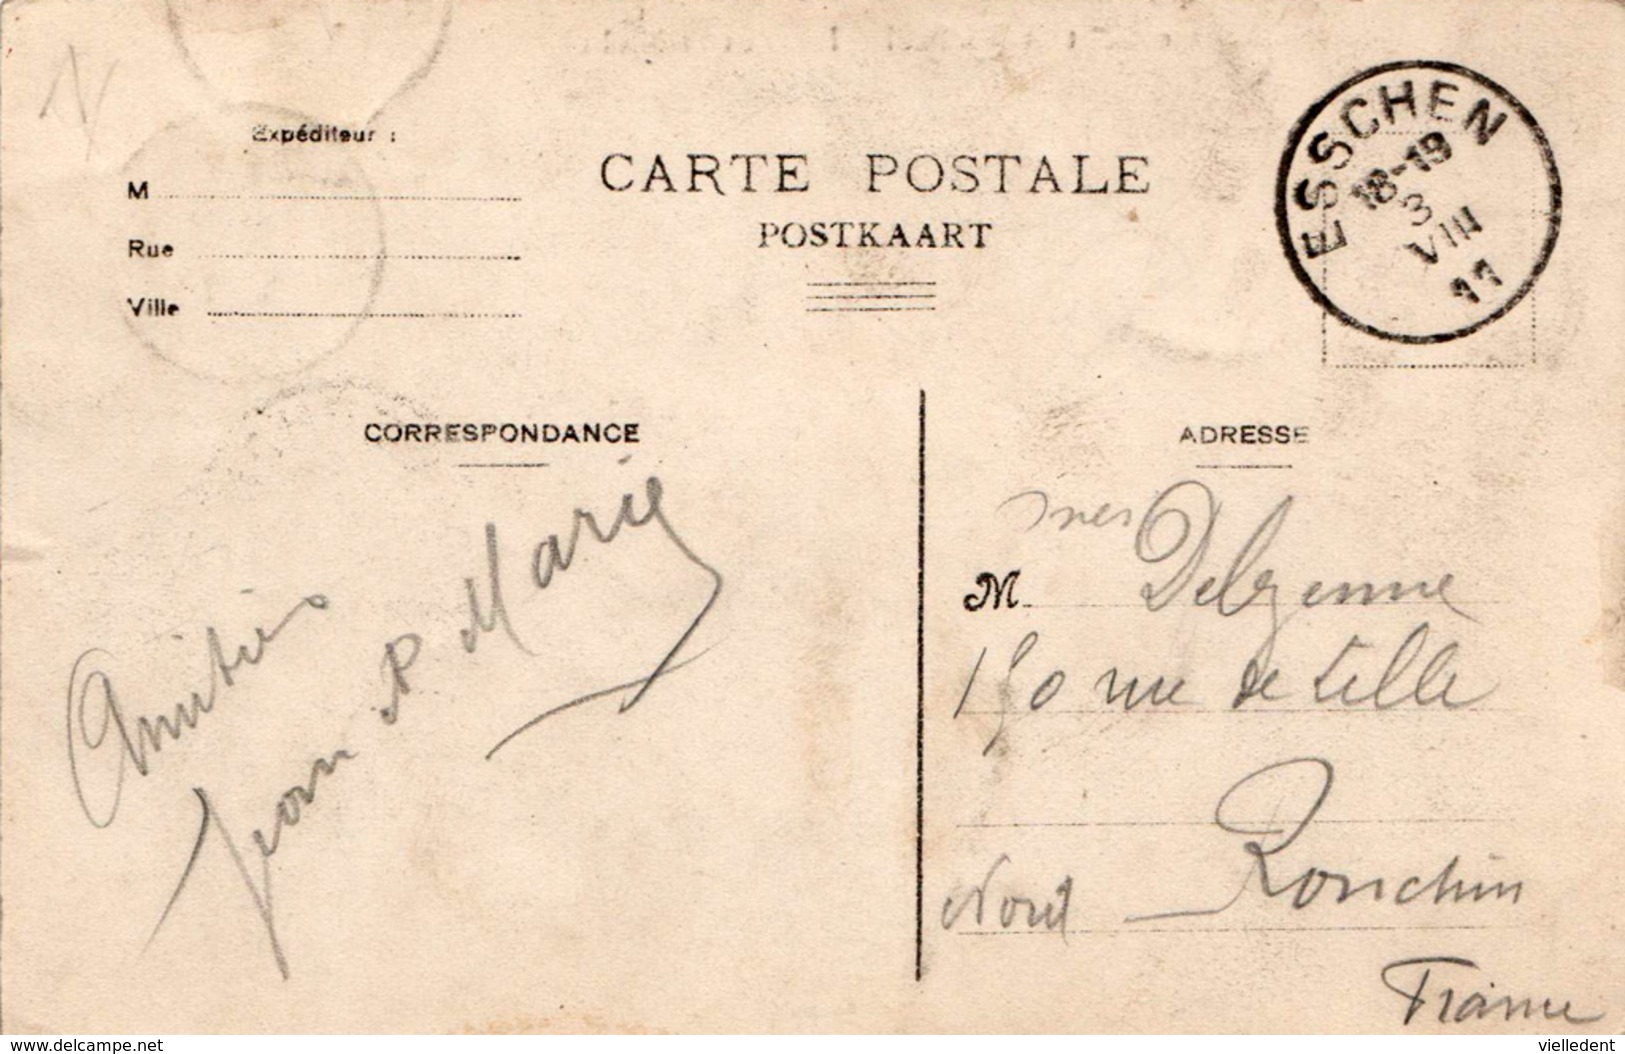 Expéditeur :
M
Rue
Ville
CARTE POSTALE
POSTKAART
ESSCHEN
18-19
3
VIII
11
CORRESPONDANCE
Amitiés
Marie
ADRESSE
M. Delezenne
150 rue de Lille
Ronchin
Nord
France
www.delcampe.net
vielledent